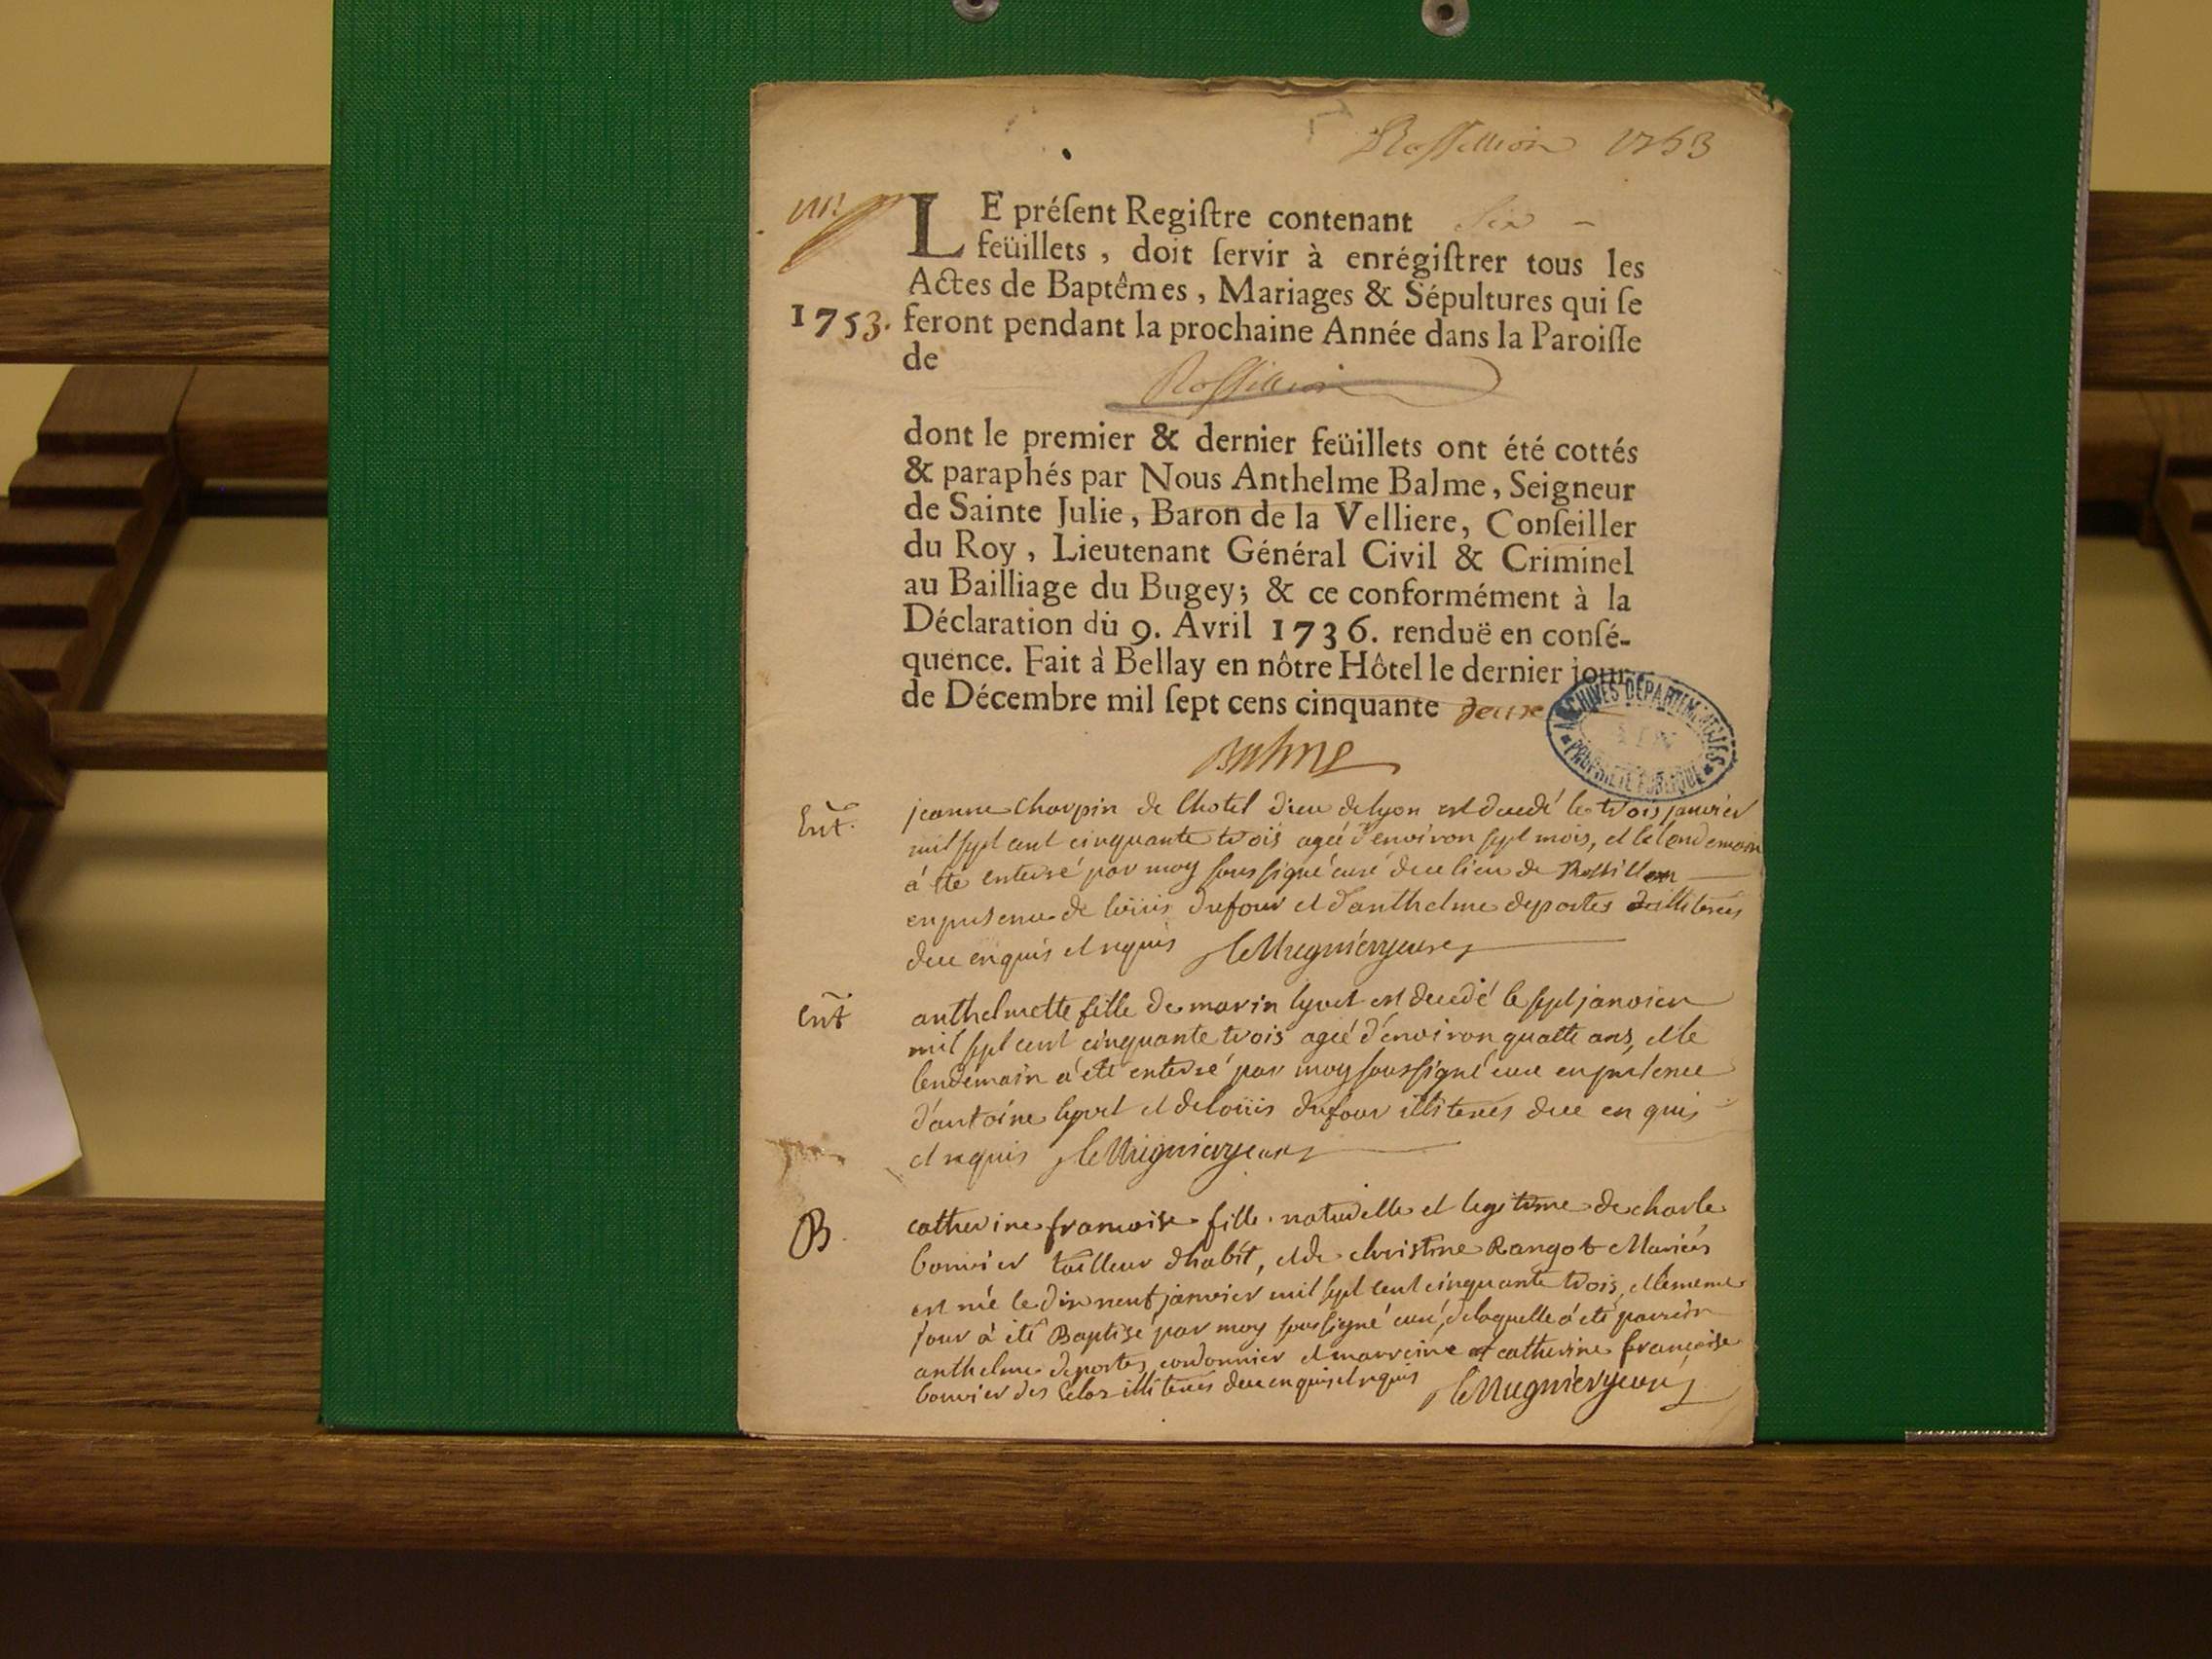 Rossillion 1753
LE préſent Regiſtre contenant six
feüillets, doit ſervir à enrégiſtrer tous les
Actes de Baptêmes, Mariages & Sépultures qui ſe
1753. feront pendant la prochaine Année dans la Paroiſſe
de
Rossillion
dont le premier & dernier feüillets ont été cottés
& paraphés par Nous Anthelme Balme, Seigneur
de Sainte Julie, Baron de la Velliere, Conſeiller
du Roy, Lieutenant Général Civil & Criminel
au Bailliage du Bugey; & ce conformément à la
Déclaration du 9. Avril 1736. renduë en conſé-
quence. Fait à Bellay en nôtre Hôtel le dernier jour
de Décembre mil ſept cens cinquante deuxe
ARCHIVES DÉPARTEMENTALES
DE L'AIN
PROPRIÉTÉ PUBLIQUE
Balme
Ent. jeanne Charpin de lhotel dieu de lyon est decedé le trois janvier
mil sept cent cinquante trois ageé d'environ sept mois, et le lendemain
á eté enterré par moy soussigné curé du lieu de Rossillon
en presence de loüis dufour et d'anthelme deportes illiteres
enquis et requis
Ent anthelmette fille de marin lyvet est decedé le sept janvier
mil sept cent cinquante trois ageé d'environ quatte ans, et le
lendemain a eté enterré par moy soussigné curé en presence
d'antoine lyvet et de loüis dufour illiteres enquis
et requis
B. catherine francoise fille naturelle et legitime de charle
bouvier tailleur dhabit, et de christine Rangot Mariés
est née le dix neuf janvier mil sept cent cinquante trois, et le meme
jour á été Baptisé par moy soussigné curé, de laquelle á eté parrein
anthelme deportes cordonnier et marreine catherine françoise
bouvier illiteres enquis et requis